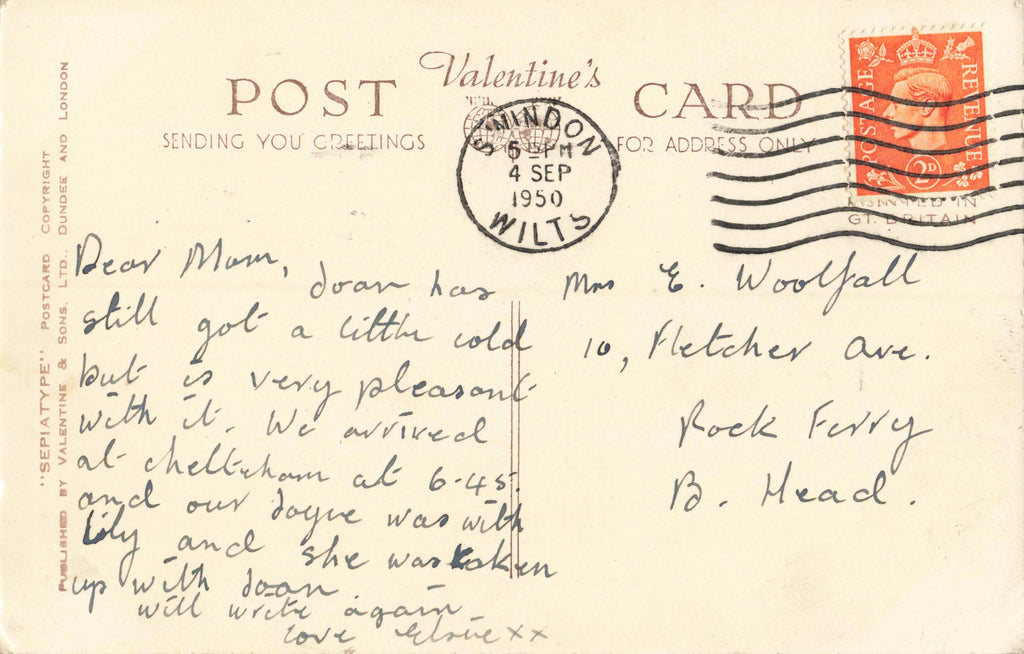 POST Valentine's CARD
SENDING YOU GREETINGS FOR ADDRESS ONLY
SWINDON
5 PM
4 SEP
1950
WILTS
POSTAGE REVENUE
2D
PRINTED IN
GT. BRITAIN
"SEPIATYPE" POSTCARD COPYRIGHT
PUBLISHED BY VALENTINE & SONS, LTD., DUNDEE AND LONDON
Dear Mam,
Joan has
still got a little cold
but is very pleasant
with it. We arrived
at cheltenham at 6-45.
and our Joyce was with
Lily and she was taken
up with Joan
will write again
love xx
Mrs E. Woolfall
10, Fletcher Ave.
Rock Ferry
B. Head.